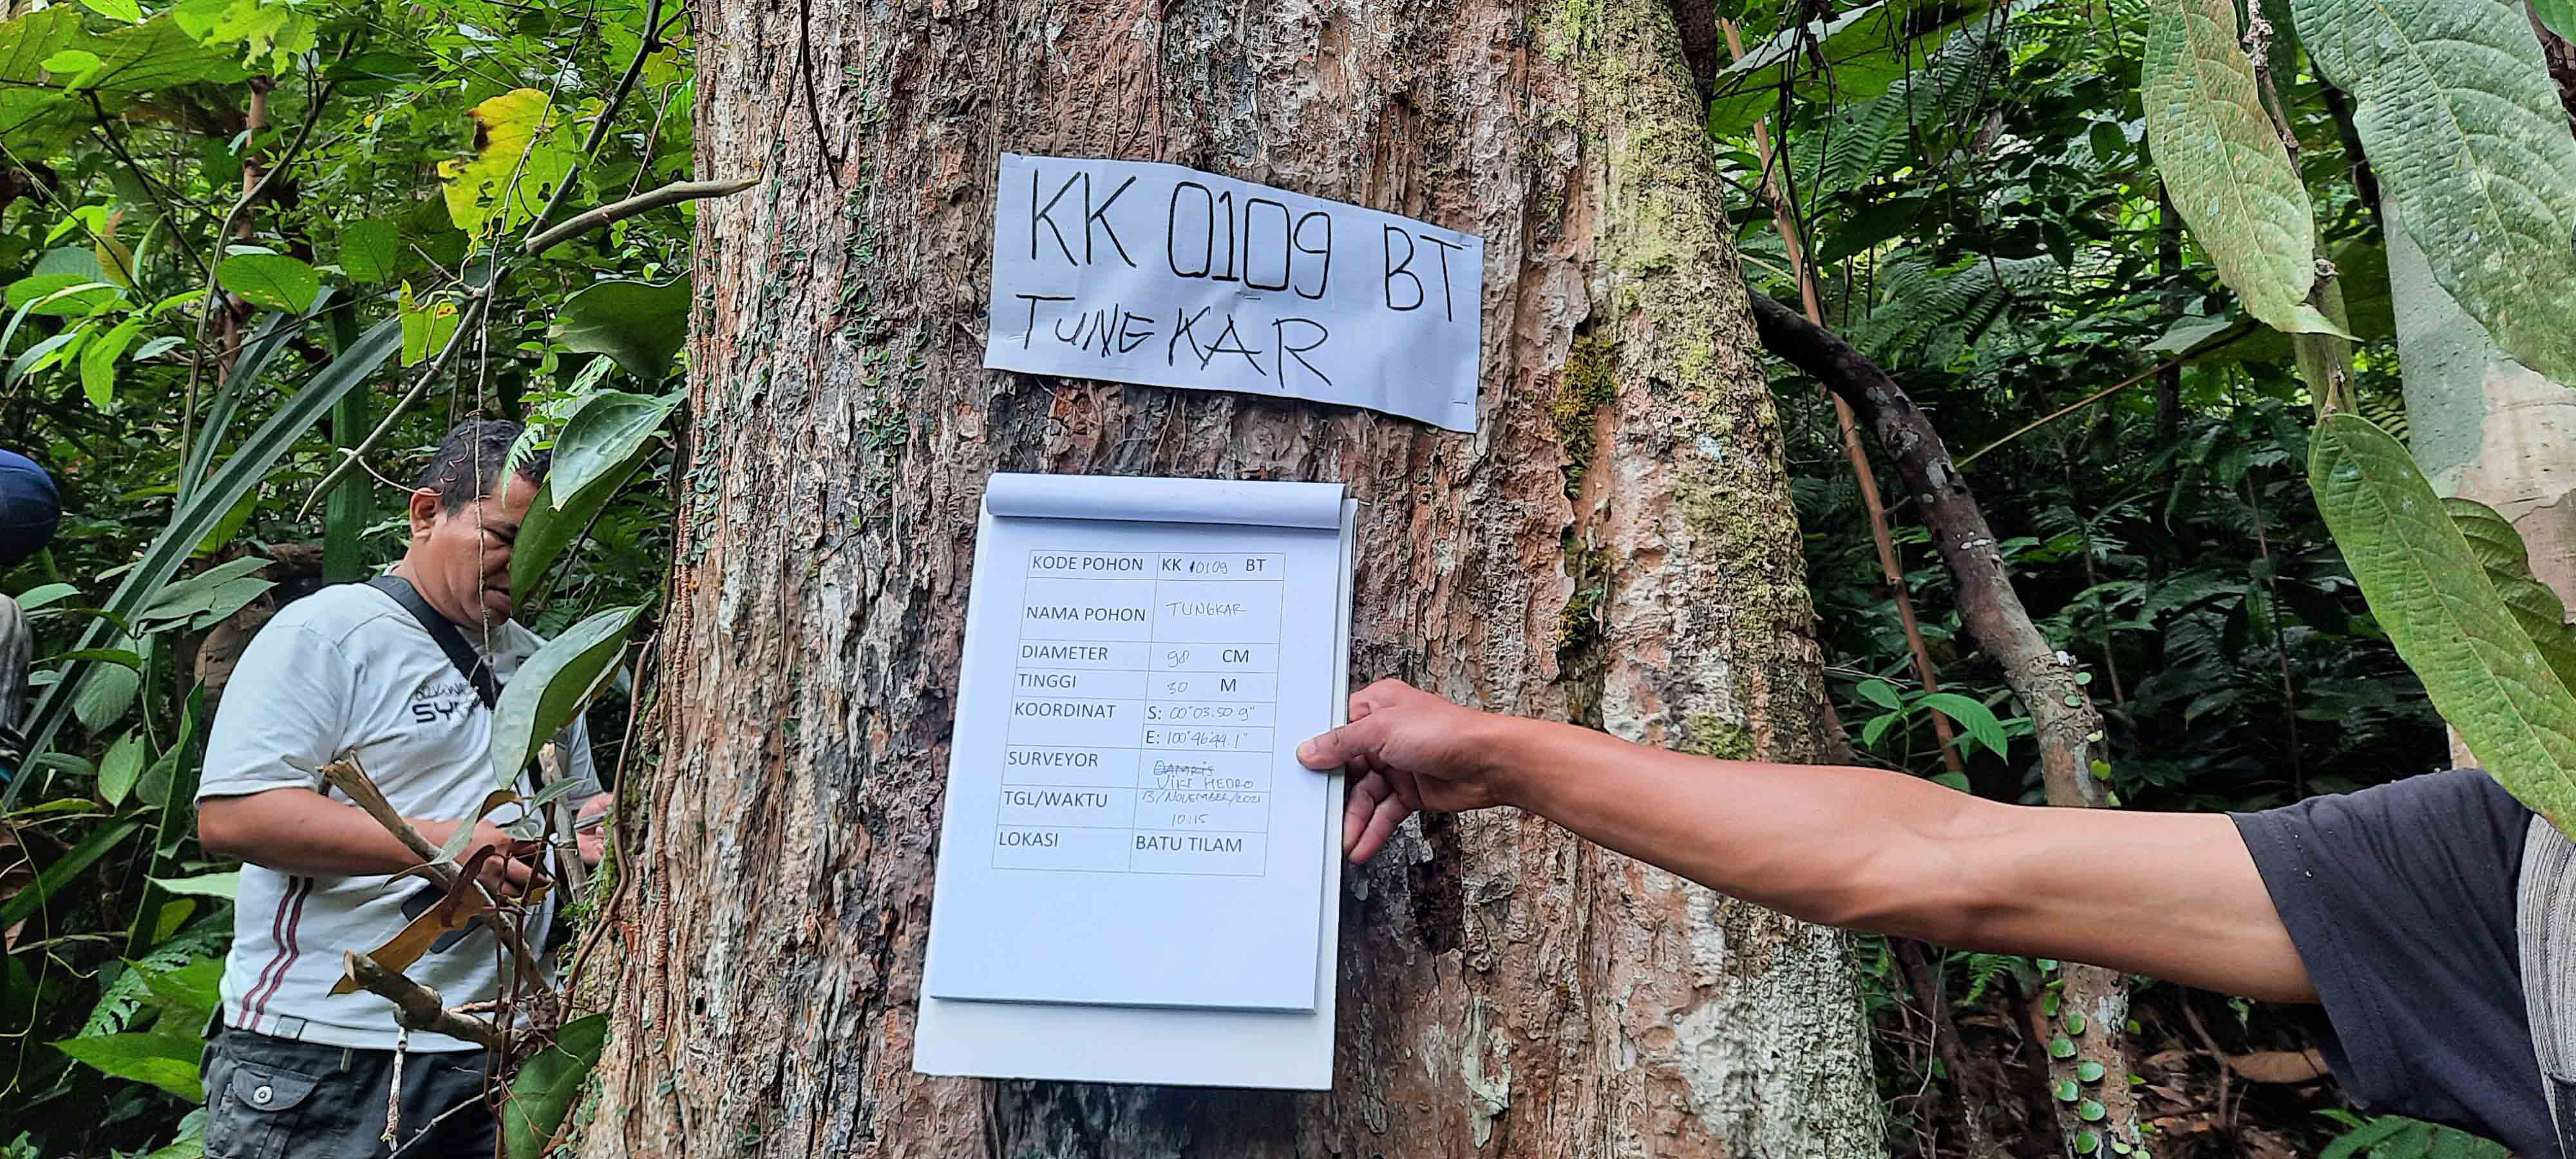 KK 0109 BT
TUNGKAR
KODE POHON KK 0109 BT
NAMA POHON TUNGKAR
DIAMETER 98 CM
TINGGI 30 M
KOORDINAT S: 00°03.50.9"
E: 100°46'44.1"
SURVEYOR DAMRIS
VIKI HENDRO
TGL/WAKTU 13/NOVEMBER/2021
10:15
LOKASI BATU TILAM